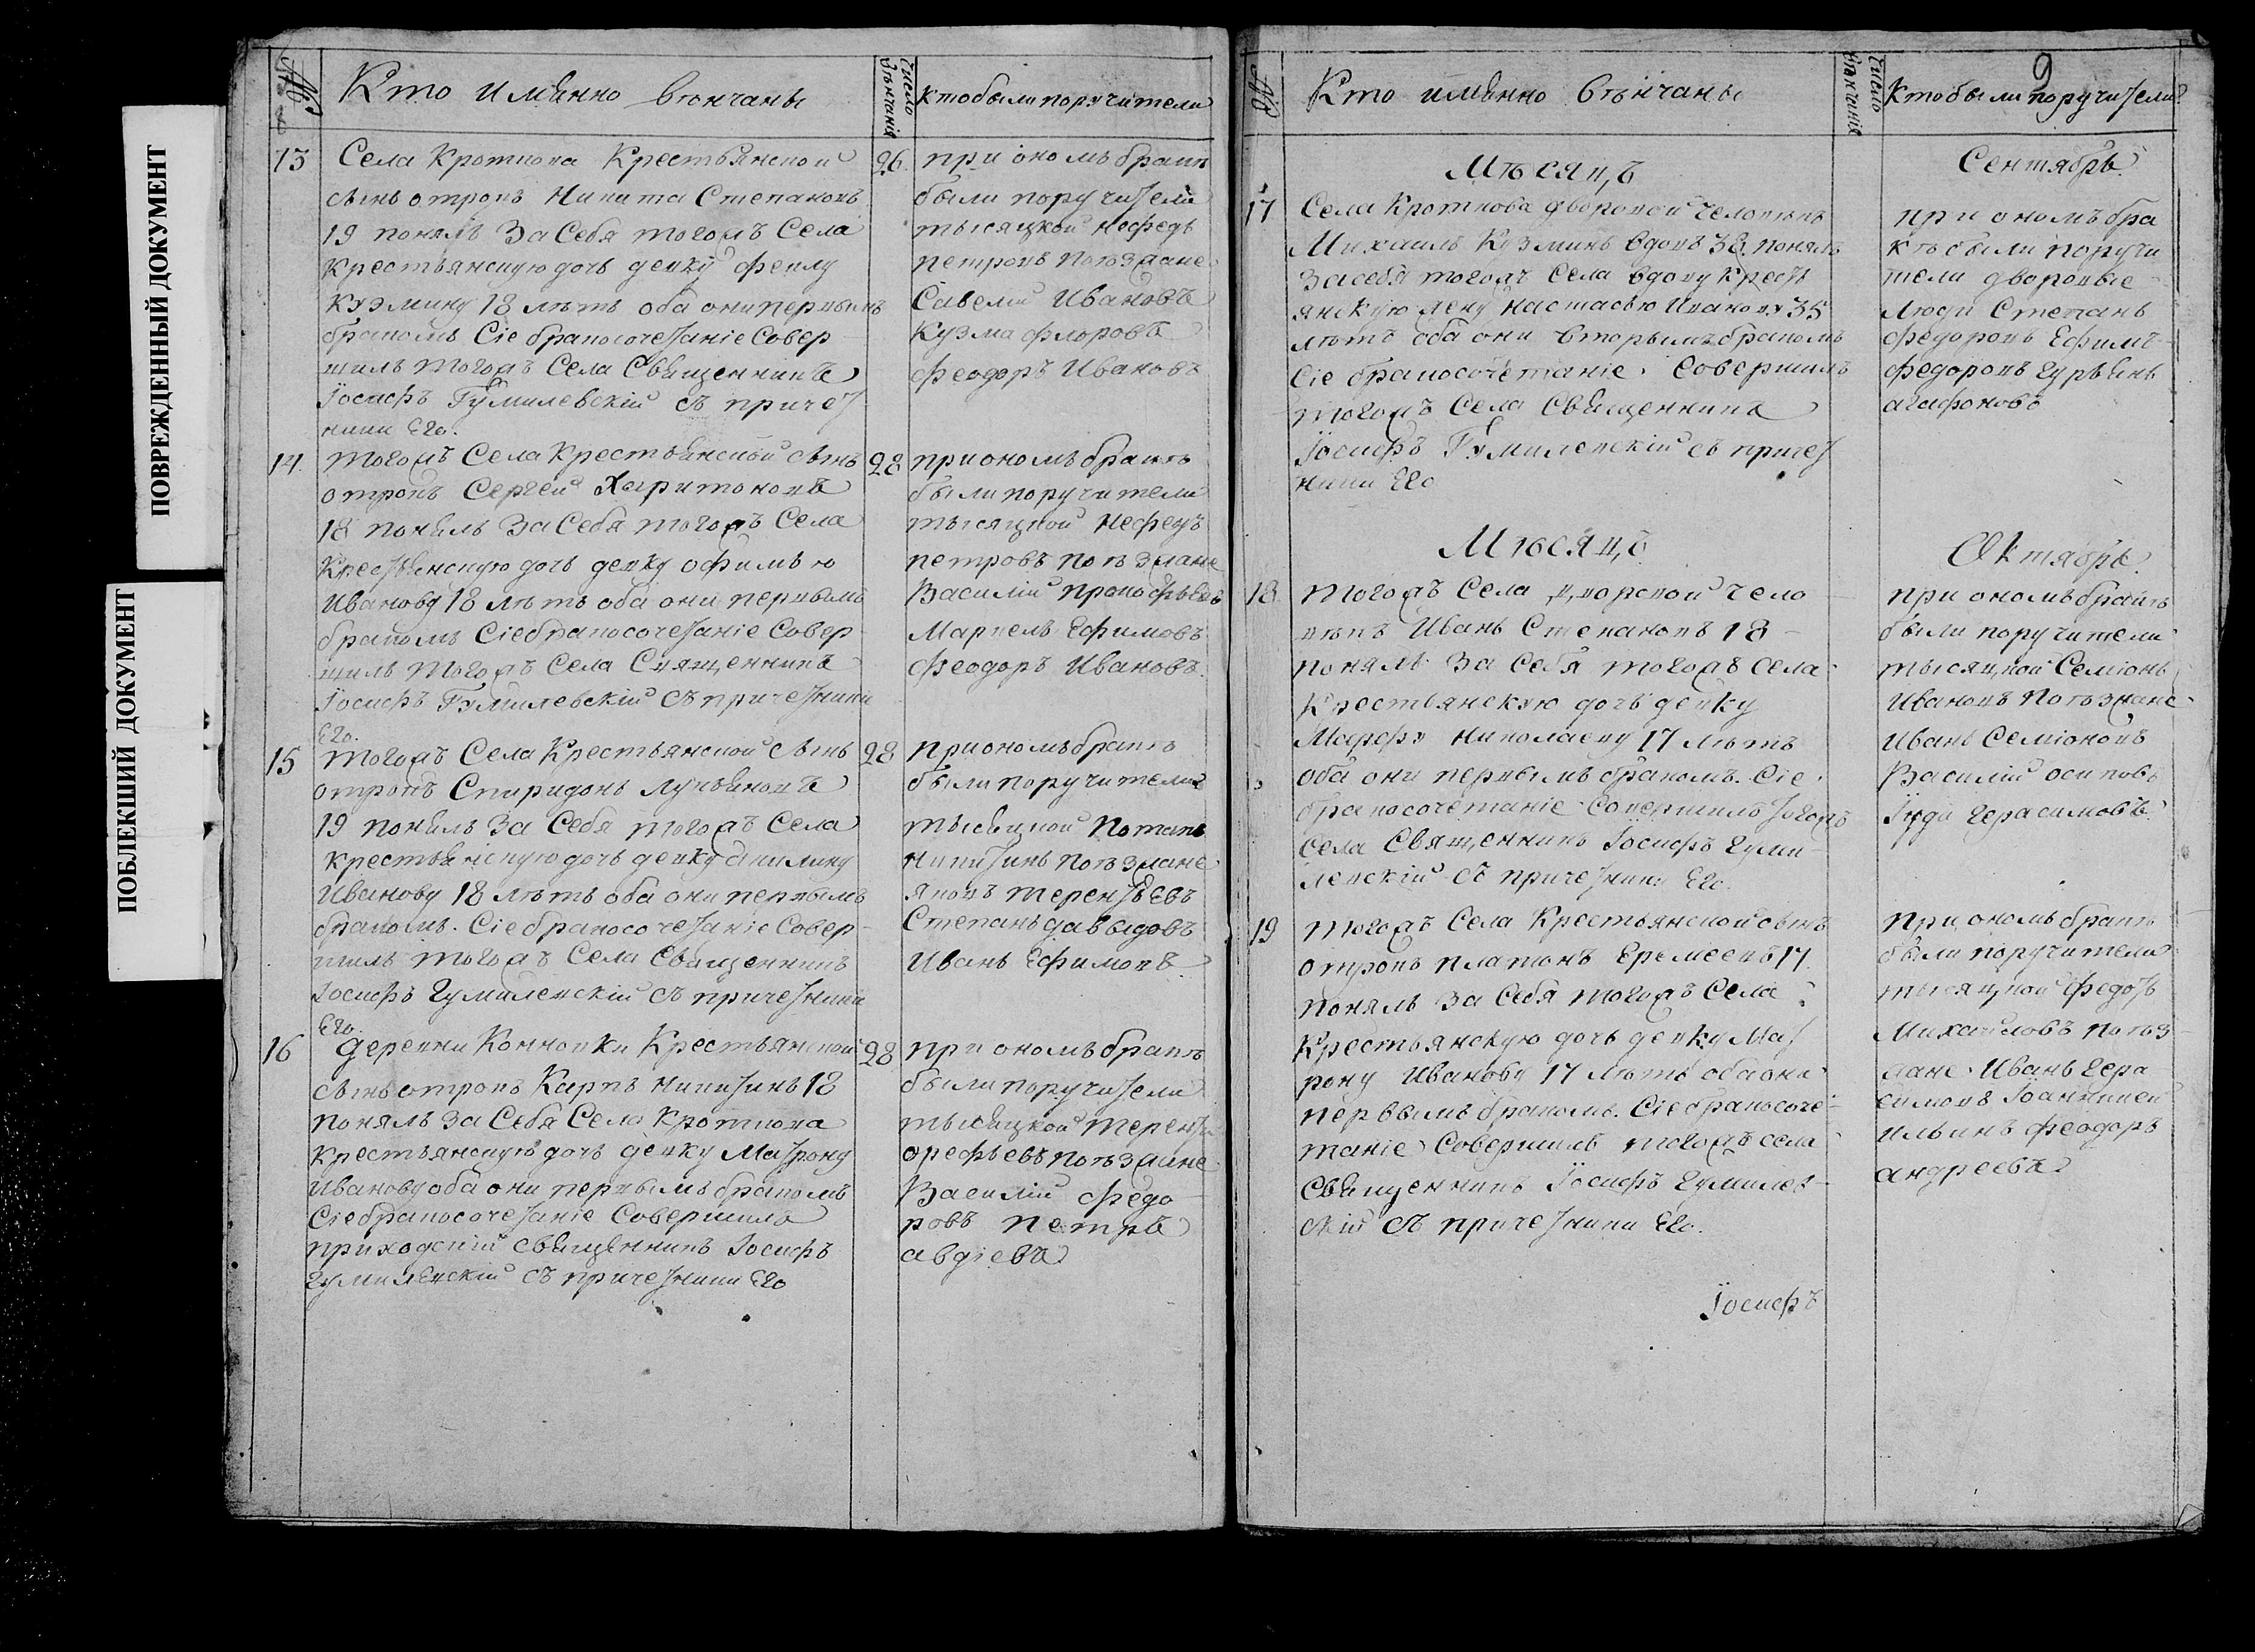 ПОВРЕЖДЕННЫЙ ДОКУМЕНТ
ПОБЛЕКШИЙ ДОКУМЕНТ
№
Кто имянно венчаны
Число венчанiя
Кто были поручители
13
Села Кроткова Крестьянской
сынъ отрокъ Никита Степановъ
19 понялъ За Себя тогожъ Села
Крестьянскую дочь девку Феклу
Кузмину 18 лѣтъ оба они первымъ
бракомъ Сiе бракосочетанiе Совер
шилъ тогожъ Села Священникъ
Iосифъ Гумилевскiй съ причет
ники Его.
26
при ономъ бракѣ
были поручители
тысяцкой Нефедъ
петровъ поѣзжане
Савелiй Ивановъ
Кузма флоровъ
феодоръ Ивановъ
14.
тогожъ Села Крестьянской сынъ
отрокъ Сергей Харитоновъ
18 понялъ За Себя тогожъ Села
Крестьянскую дочь девку офимью
Иванову 18 лѣтъ оба они первымъ
бракомъ Сiе бракосочетанiе Совер
шилъ тогожъ Села Священникъ
Iосифъ Гумилевскiй съ причетники
Его.
28
при ономъ бракѣ
были поручители
тысяцкой Нефедъ
петровъ поѣзжане
Василiй прокофьевъ
Маркелъ Ефимовъ
феодоръ Ивановъ
15
тогожъ Села Крестьянской сынъ
отрокъ Спиридонъ Лукьяновъ
19 понялъ за Себя тогожъ Села
крестьянскую дочь девку акилину
Иванову 18 лѣтъ оба они первымъ
бракомъ. Сiе бракосочетанiе Совер
шилъ тогожъ Села Священникъ
Iосифъ Гумилевскiй съ причетники
Его.
28
при ономъ бракѣ
были поручители
тысяцкой Потапъ
Никитинъ поѣзжане
Яковъ терентьевъ
Степанъ давыдовъ
Иванъ Ефимовъ
16
деревни Конновки Крестьянской
сынъ отрокъ Карпъ Никитинъ 18
понялъ за Себя Села Кроткова
крестьянскую дочь девку Матрону
Иванову оба они первымъ бракомъ
Сiе бракосочетанiе Совершилъ
приходскiй священникъ Iосифъ
гумилевскiй съ причетники Его
28
при ономъ бракѣ
были поручители
тысяцкой терентей
орефьевъ поѣзжане
Василiй федо
ровъ петръ
авдiевъ
9
№
Кто имянно венчаны
Число венчанiя
Кто были поручители
Мѣсяцъ
Сентябрь
17
Села Кроткова дворовой человѣкъ
Михаилъ Кузминъ вдовъ 38 понялъ
За себя тогожъ Села вдову Кресть
янскую жену Настасью Иванову 35
лѣтъ оба они вторымъ бракомъ
Сiе бракосочетанiе Совершилъ
тогожъ Села Священникъ
Iосифъ Гумилевскiй съ причет
ники Его
при ономъ бра
кѣ были поручи
тели дворовые
люди Степанъ
федоровъ Ефимъ
федоровъ гурьянъ
агафоновъ
Мѣсяцъ
Октябрь.
18
тогожъ Села дворовой чело
вѣкъ Иванъ Степановъ 18
понялъ за Себя тогожъ села
Крестьянскую дочь девку
Марфу Николаеву 17 лѣтъ
оба они первымъ бракомъ. Сiе
бракосочетанiе Совершилъ тогожъ
Села Священникъ Iосифъ гуми
левскiй съ причетники Его.
при ономъ бракѣ
были поручители
тысяцкой Семiонъ
Ивановъ поѣзжане
Иванъ Семiоновъ
Василiй осиповъ
Iуда герасимовъ
19
тогожъ Села Крестьянской сынъ
отрокъ платонъ Еремеевъ 17
понялъ за Себя тогожъ Села
Крестьянскую дочь девку Мат
рону Иванову 17 лѣтъ оба они
первымъ бракомъ. Сiе бракосоче
танiе Совершилъ тогожъ села
Священникъ Iосифъ гумилев
скiй съ причетники Его.
при ономъ бракѣ
были поручители
тысяцкой федотъ
Михайловъ поѣз
жане Иванъ гера
симовъ Iоанникей
Ильинъ феодоръ
андреевъ
Iосифъ